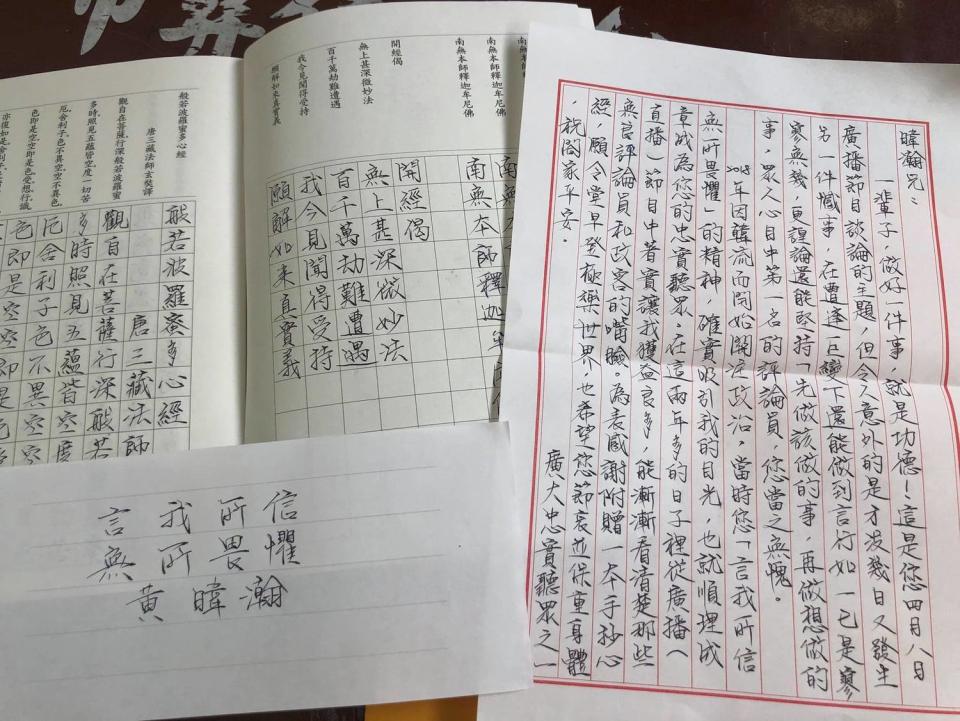 暐瀚兄：
一輩子，做好一件事，就是功德！這是您四月八日
廣播節目談論的主題，但令人意外的是才沒幾日又發生
另一件憾事，在遭逢巨變下還能做到言行如一已是寥
寥無幾，更諻論還能堅持「先做該做的事，再做想做的
事，眾人心目中第一名的評論員，您當之無愧。
2018年因韓流而開始關注政治，當時您「言我所信
無所畏懼」的精神，確實吸引我的目光，也就順理成
章成為您的忠實聽眾。在這兩年多的日子裡從廣播（
直播）節目中著實讓我獲益良多，能漸漸看清楚那些
無良評論員和政客的嘴臉。為表感謝附贈一本手抄心
經，願令堂早登極樂世界，也希望您節哀並保重身體
，祝闔家平安。
廣大忠實聽眾之一
南無本師釋迦牟尼佛
南無本師釋迦牟尼佛
開經偈
無上甚深微妙法
百千萬劫難遭遇
我今見聞得受持
願解如來真實義
南無
南無本師釋迦牟
開經偈
無上甚深微妙法
百千萬劫難遭遇
我今見聞得受持
願解如来真實義
般若波羅蜜多心經
唐三藏法師玄奘譯
觀自在菩薩行深般若波羅蜜
多時照見五蘊皆空度一切苦
厄舍利子色不異空空不異色
色即是空空即是色受想行識
亦復如是舍利子
般若波羅蜜多心經
唐三藏法師
觀自在菩薩行深般若
多時照見五蘊皆空度
厄舍利子色不異空空
色即是空空即是色
言我所信
無所畏懼
黃暐瀚